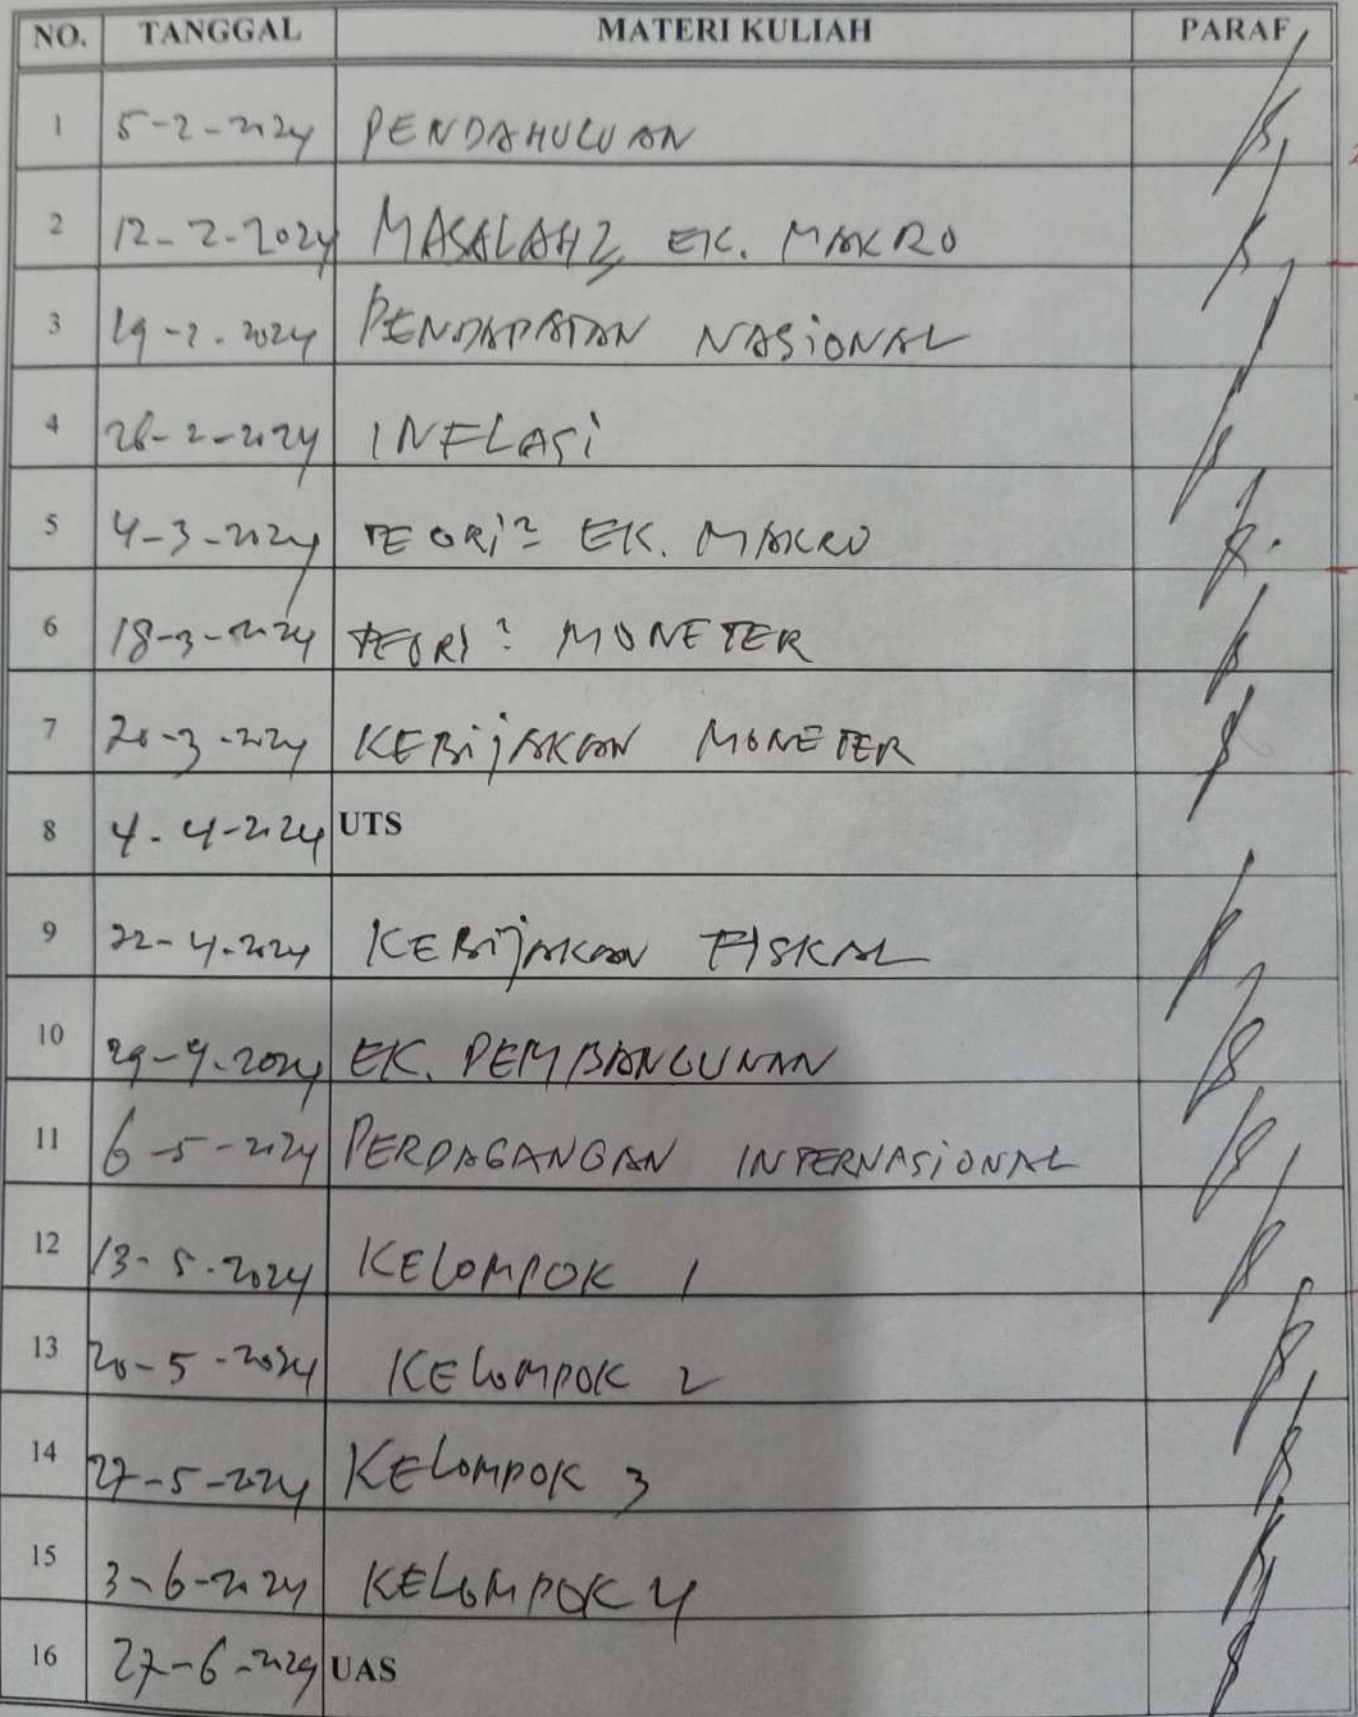 NO. TANGGAL MATERI KULIAH PARAF
1 5-2-2024 PENDAHULUAN
2 12-2-2024 MASALAH2 EK. MAKRO
3 19-2-2024 PENDAPATAN NASiONAL
4 26-2-2024 INFLASi
5 4-3-2024 TEORi2 EK. MAKRO
6 18-3-2024 TEORI2 MONETER
7 20-3-2024 KEBijAKAN MONETER
8 4-4-2024 UTS
9 22-4-2024 KEBijAKAN FISKAL
10 29-4-2024 EK. PEMBANGUNAN
11 6-5-2024 PERDAGANGAN INTERNASiONAL
12 13-5-2024 KELOMPOK 1
13 20-5-2024 KELOMPOK 2
14 27-5-2024 KELOMPOK 3
15 3-6-2024 KELOMPOK 4
16 27-6-2024 UAS